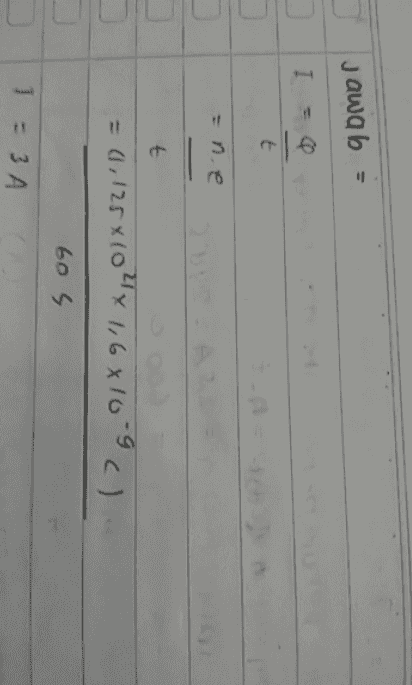 Jawab =
I = Q
t
= n.e
t
= (1,125 x 10²¹ x 1,6 x 10⁻⁹ C)
60 s
I = 3 A